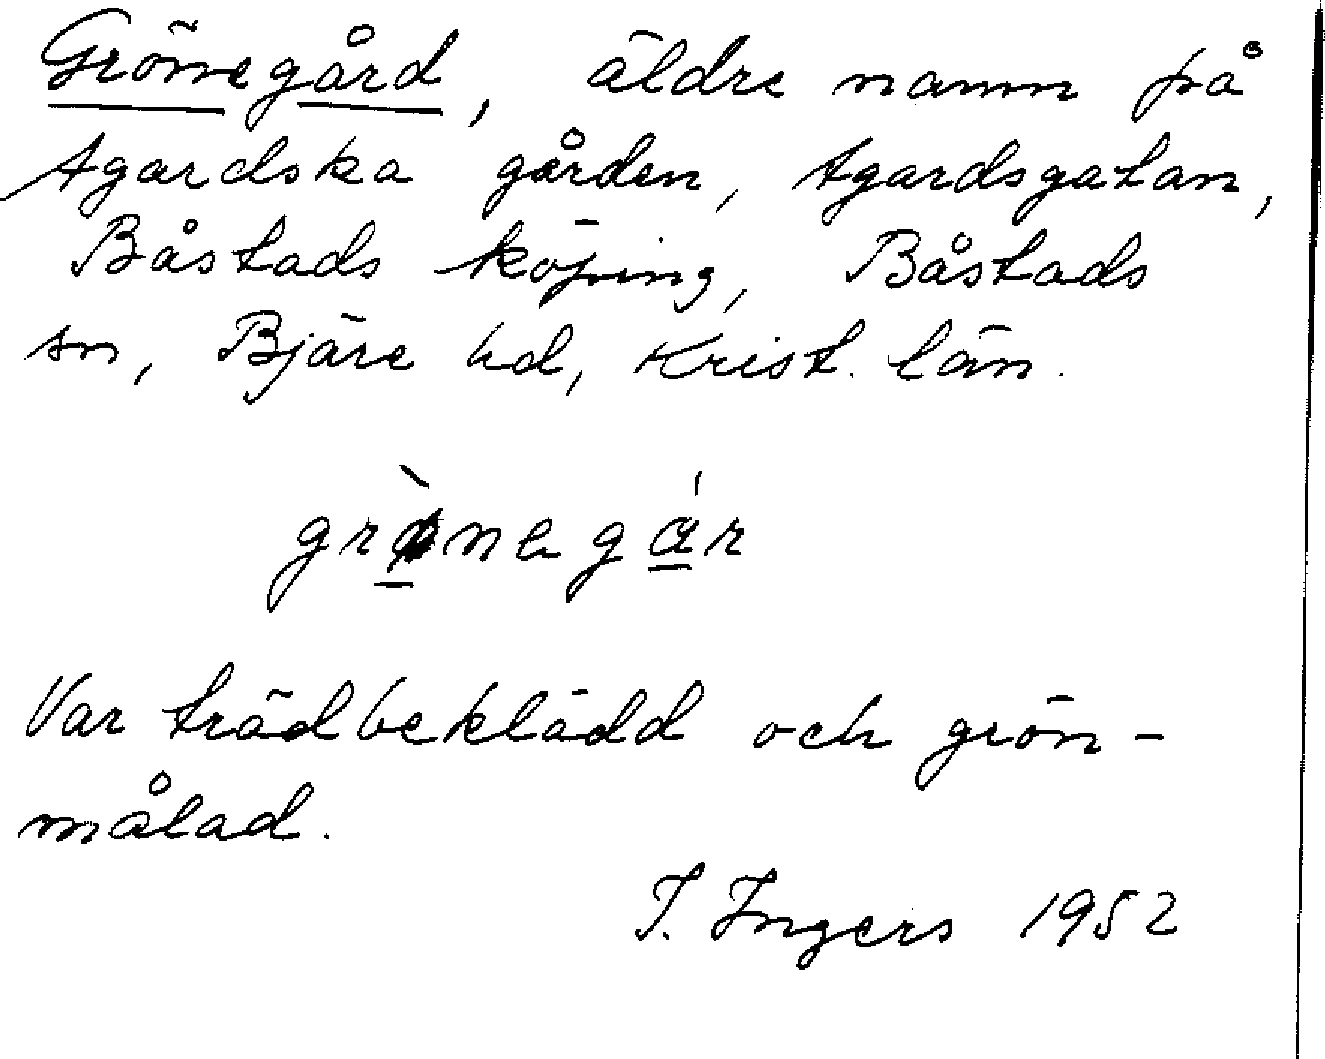 Grönegård, äldre namn på
Agardska gården, Agardsgatan,
Båstads köping, Båstads
sn, Bjäre hd, Krist. län.
Var trädbeklädd och grön-
målad.
I. Ingers 1952